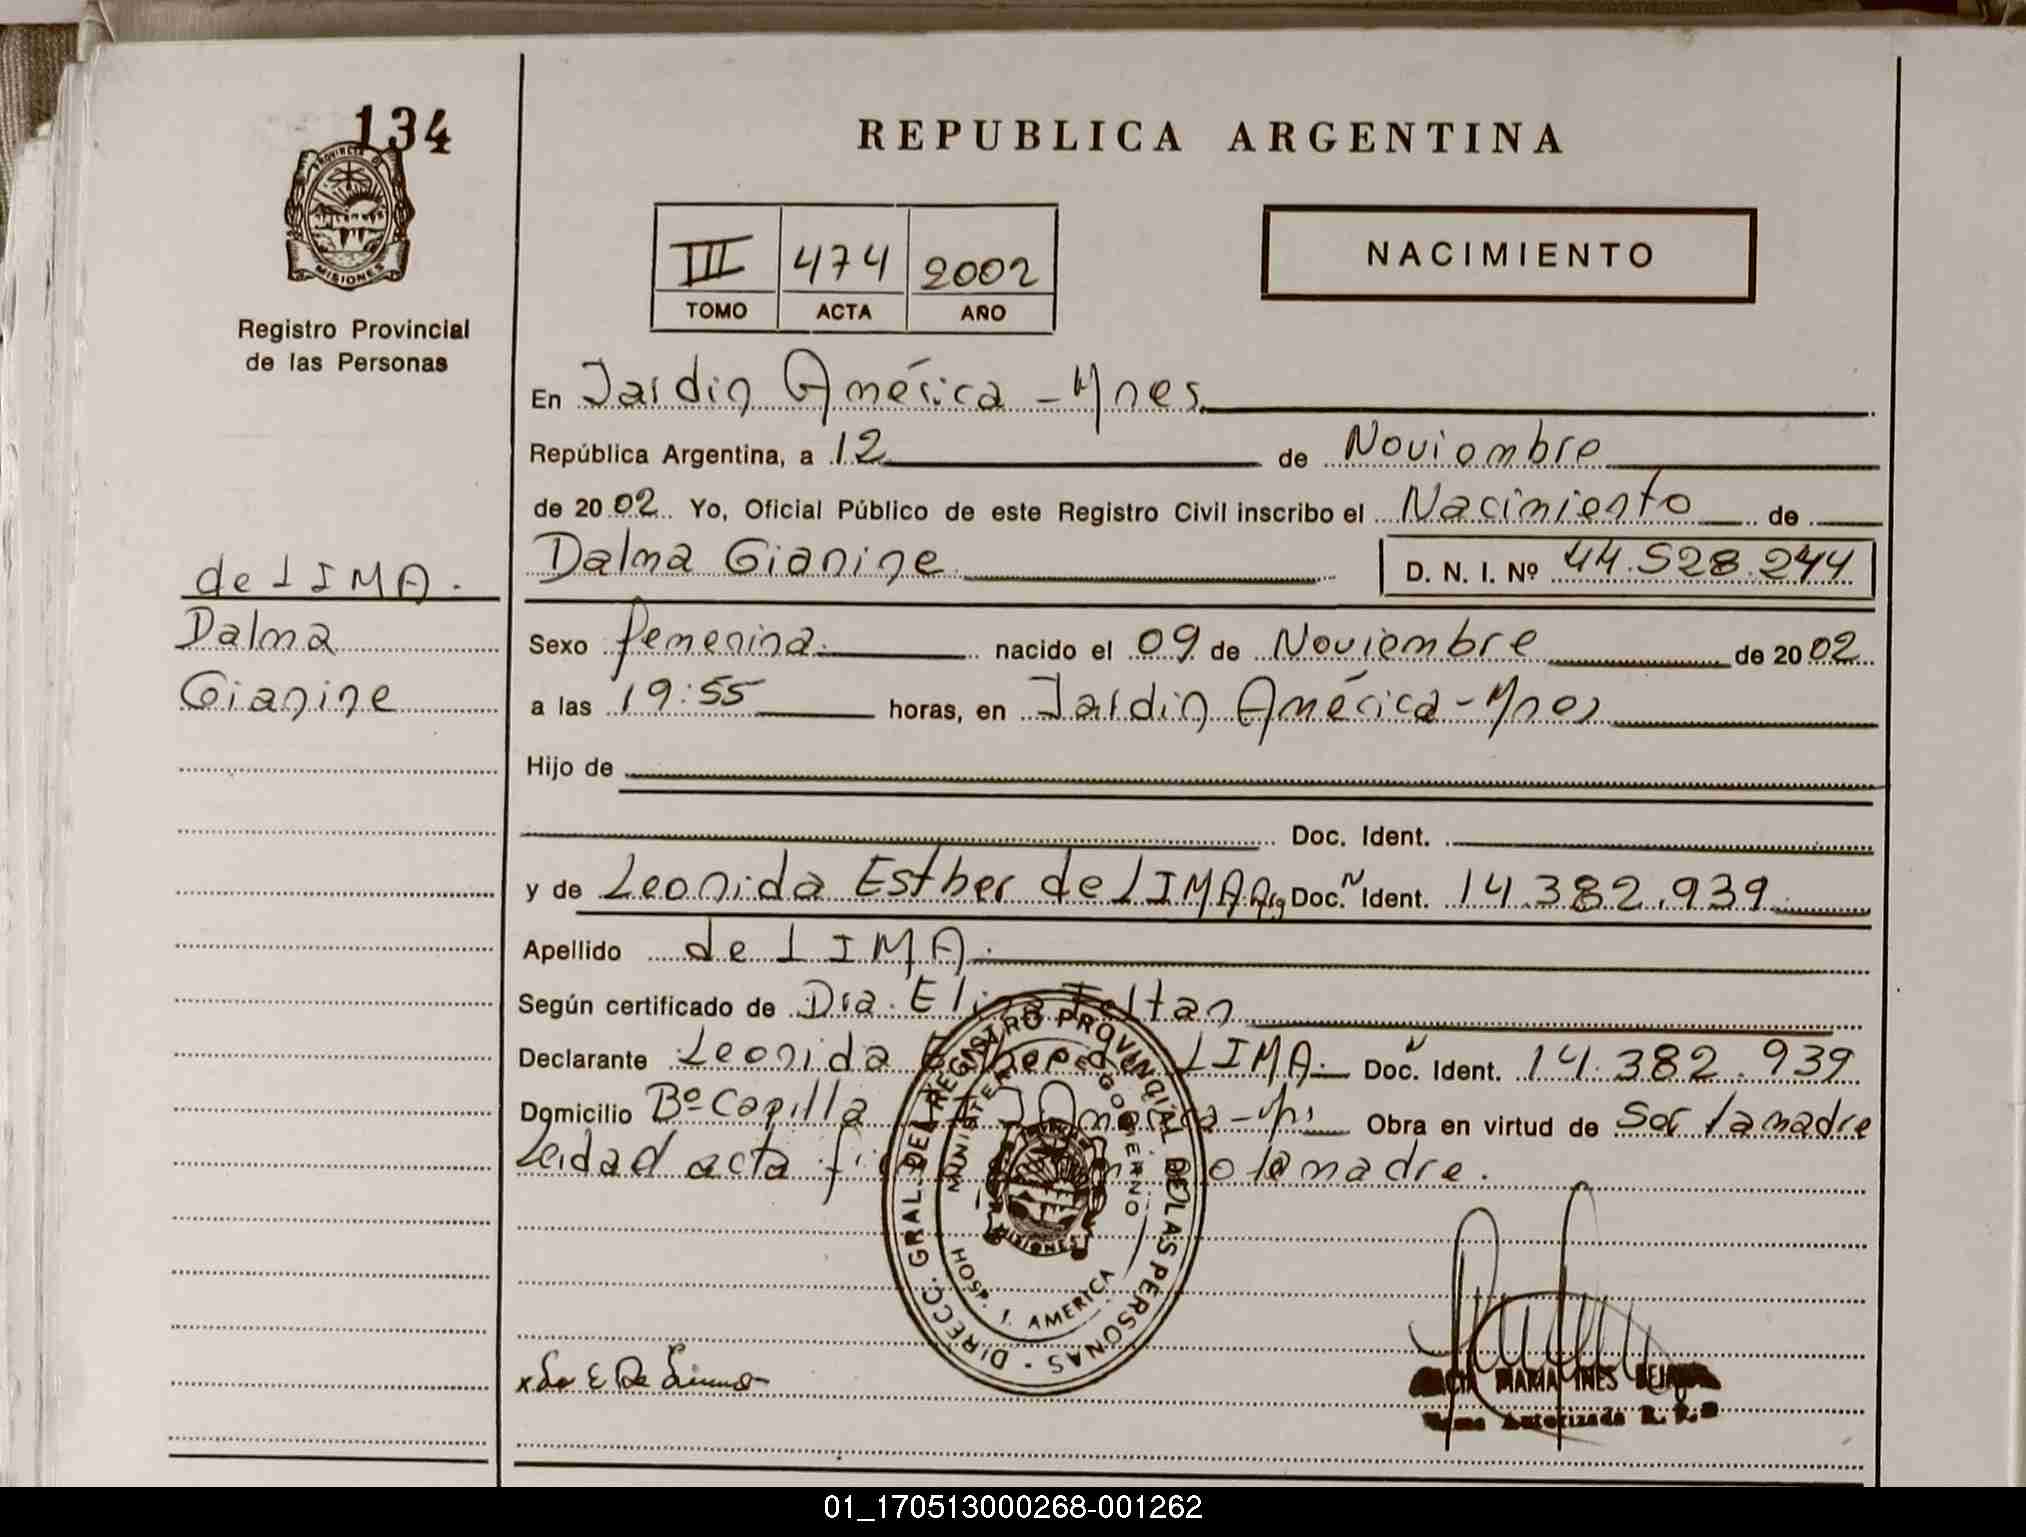 134
PROVINCIA DE
MISIONES
Registro Provincial
de las Personas
de LIMA.
Dalma
Gianine
REPUBLICA ARGENTINA
III 474 2002
TOMO ACTA AÑO
NACIMIENTO
En Jardin América - Mnes
República Argentina, a 12 de Noviembre
de 2002. Yo, Oficial Público de este Registro Civil inscribo el Nacimiento de
Dalma Gianine D. N. I. Nº 44.528.244
Sexo femenina nacido el 09 de Noviembre de 2002
a las 19:55 horas, en Jardin América - Mnes
Hijo de
Doc. Ident.
y de Leonida Esther de LIMA Arg Doc. N Ident. 14.382.939
Apellido de LIMA.
Según certificado de Dra. Elina Feltan
Declarante Leonida Esther de LIMA. Doc. N Ident. 14.382.939
Domicilio Bº Capilla América - Mnes Obra en virtud de Ser la madre
Leidad acta la madre.
DIRECC. GRAL. DEL REGISTRO PROVINCIAL DE LAS PERSONAS
MINISTERIO DE GOBIERNO
MISIONES
HOSP. J. AMERICA
x Le E De Lima
MARIA INES
Firma Autorizada R. P. P
01_170513000268-001262